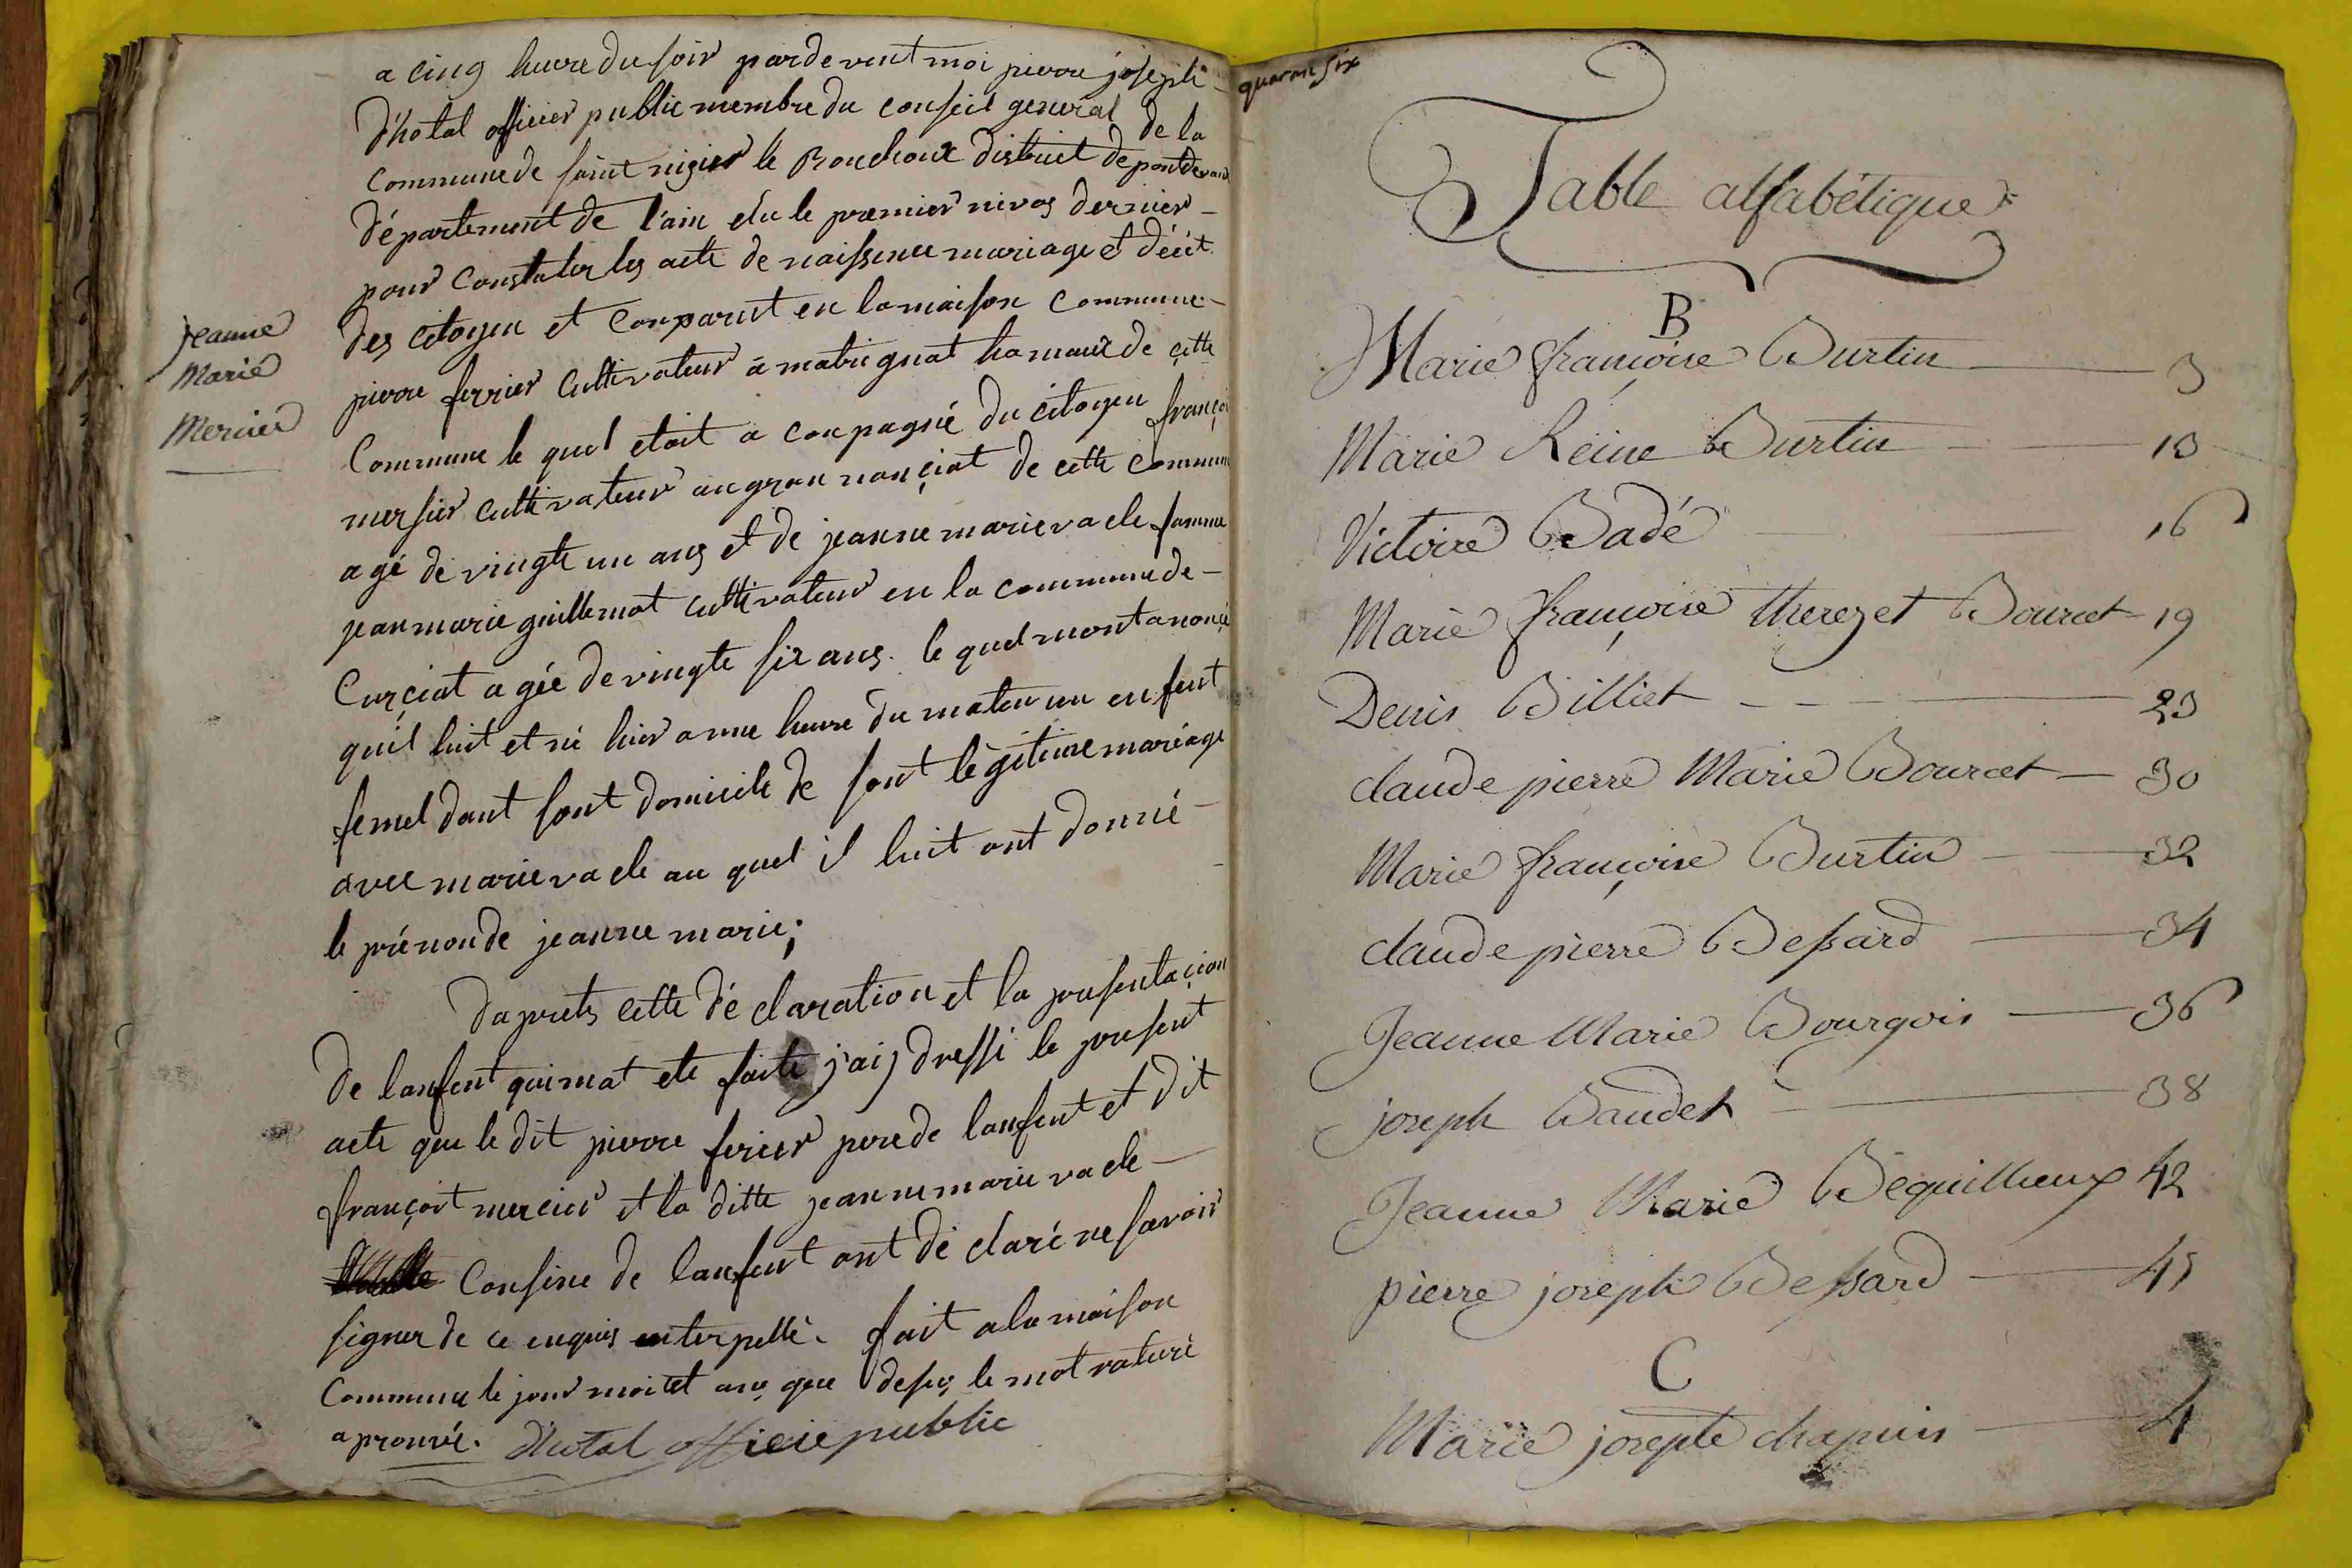 a cinq heure du soir pardevent moi pierre joseph
d'hotal officier public membre du conseil general de la
commune de saint nizier le Bouchoux district de pontdevaux
département de l'ain élu le premier nivos dernier
pour constater les acte de naissence mariage et décét
des citoyen et comparut en la maison commune
pierre ferrier cultivateur a matrignat hamaux de cette
commune le quel etoit a conpagné du citoyen françoi
mersier cultivateur au gran nonçiat de cette commune
agé de vingte un ans et de jeanne marie vacle famme
jean marie guillemot cultivateur en la commune de
Curçiat agée de vingte six ans. le quel mont anoncé
quil luit et né hier a une heure du matin un enfent
femel dant sont domicile de sont légitime mariage
avec marie vacle au quel il luit ont donné
le prénon de jeanne marie;
Daprets cette déclaration et la presentaçion
de lanfent qui mat ete faite j'aij dressé le present
acte que le dit pierre ferier pere de lanfent et dit
françoit mercier et la ditte jeanne marie vacle
Consine de lanfent ont déclaré ne savoir
signer de ce enquis enterpellé. fait a la maison
Commune le jour moi et ans que desus le mot raturé
aprouvé. d'hotal officie public
Jeanne
Marie
Mercier
quaran six
Table alfabétique
B
Marie françoise Burtin 3
Marie Reine Burtin 13
Victoire Badé 16
Marie françoise therezet Bourcet 19
Denis Billiet 23
claude pierre Marie Bourcet 30
Marie françoise Burtin 32
claude pierre Bessard 34
Jeanne Marie Bourgois 36
joseph Baudet 38
Jeanne Marie Bequilleux 42
pierre joseph Bessard 45
C
Marie josepte chapuis 4